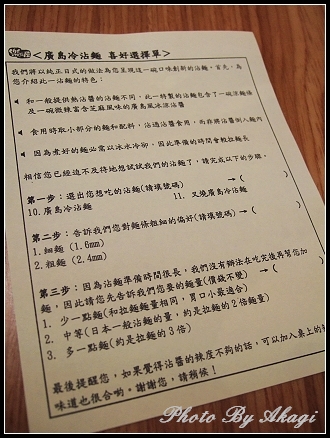 <廣島冷沾麵 喜好選擇單>
我們將以純正日式的做法為您呈現這一碗口味創新的沾麵。首先，為
您介紹此一沾麵的特色：
和一般提供熱沾醬的沾麵不同，此一特製的沾麵包含了一碗涼麵條
及一碗微辣富含芝麻風味的廣島風冰涼沾醬
食用時取小部分的麵和配料，沾過沾醬食用，而非將沾醬倒入麵內
因為煮好的麵必需以冰水冷卻，因此準備的時間會較拉麵長
相信您已經迫不及待地想試試我們的沾麵了，請完成以下的步驟。
第一步：選出您想吃的沾麵(請填號碼) →( )
10. 廣島冷沾麵 11. 叉燒廣島冷沾麵
第二步：告訴我們您對麵條粗細的偏好(請填號碼) →( )
1. 細麵 (1.6mm)
2. 粗麵 (2.4mm)
第三步：因為沾麵準備時間很長，我們沒有辦法在吃完後再幫您加
麵，因此請您先告訴我們您要的麵量(價錢不變) →( )
1. 少一點麵(和拉麵麵量相同，胃口小最適合)
2. 中等(日本一般沾麵的量，約是拉麵的2倍麵量)
3. 多一點麵(約是拉麵的3倍)
最後提醒您，如果覺得沾醬的辣度不夠的話，可以加入桌上的
味道也很合喲。謝謝您，請稍候！
Photo By Akagi